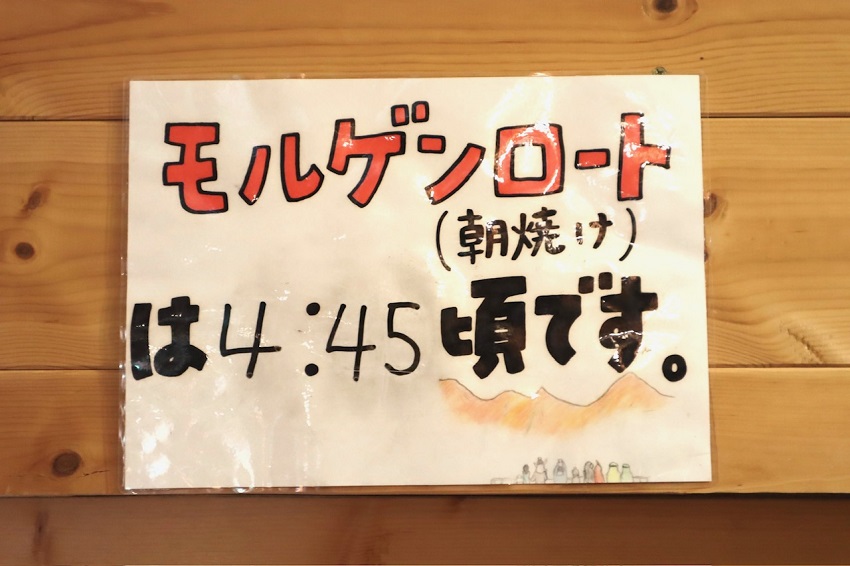 モルゲンロート
(朝焼け)
は4:45頃です。